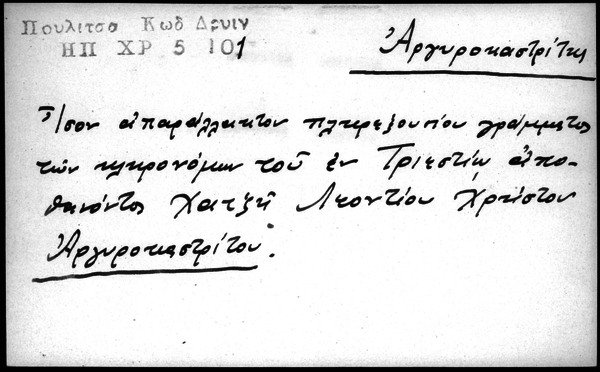 Πουλιτσα Κωδ Δρυιν
ΗΠ ΧΡ 5 101
Ἀργυροκαστρίτης
Ἴσον ἀπαράλλακτον πληρεξουσίου γράμματος
τῶν κληρονόμων τοῦ ἐν Τριεστίῳ ἀπο-
θανόντος Χατζῆ Λεοντίου Χρήστου
Ἀργυροκαστρίτου.